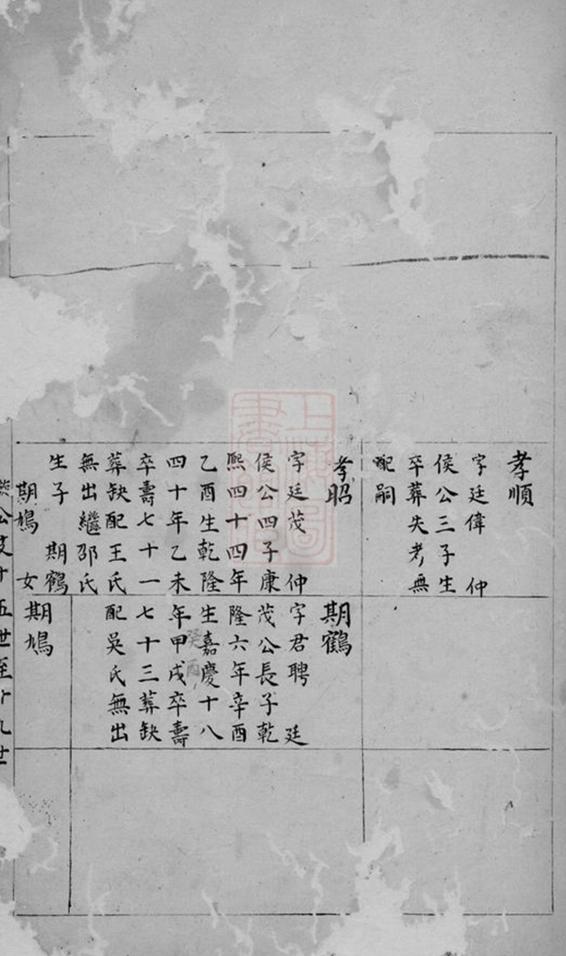 孝順
字廷偉 仲
侯公三子生
卒葬失考無
配嗣
孝昭
字廷茂 仲
侯公四子康
熙四十四年
乙酉生乾隆
四十年乙未
卒壽七十一
葬缺配王氏
無出繼邵氏
生子 期鶴
期鳩 女
期鶴
字君聘 廷
茂公長子乾
隆六年辛酉
生嘉慶十八
年甲戌卒壽
癸酉
七十三葬缺
配吳氏無出
期鳩
公支十五世至十九世